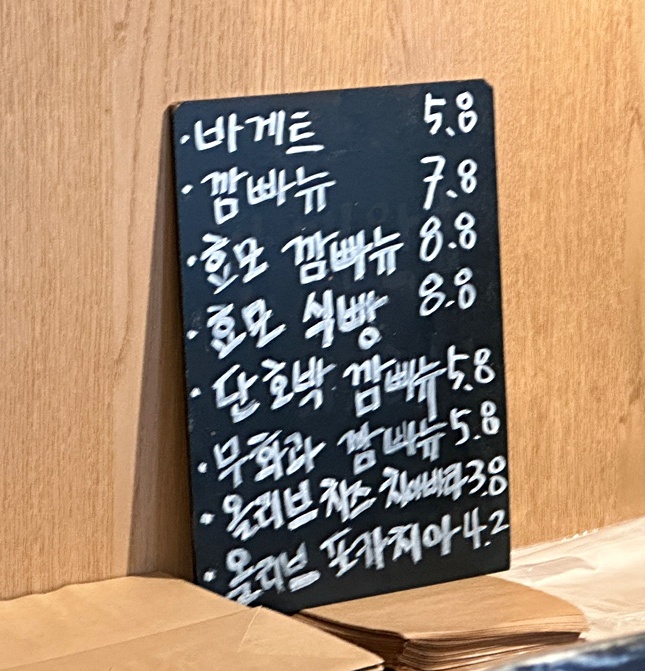 ·바게트 5.8
·깜빠뉴 7.8
·호모 깜빠뉴 8.8
·호모 식빵 8.8
·단호박 깜빠뉴 5.8
·무화과 깜빠뉴 5.8
·올리브 치즈 치아바타 3.8
·올리브 포카치아 4.2